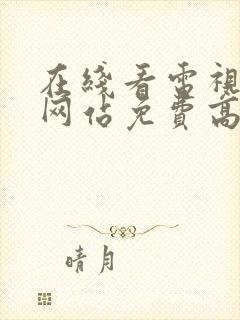 在綫看電視
网佔免費高
晴月